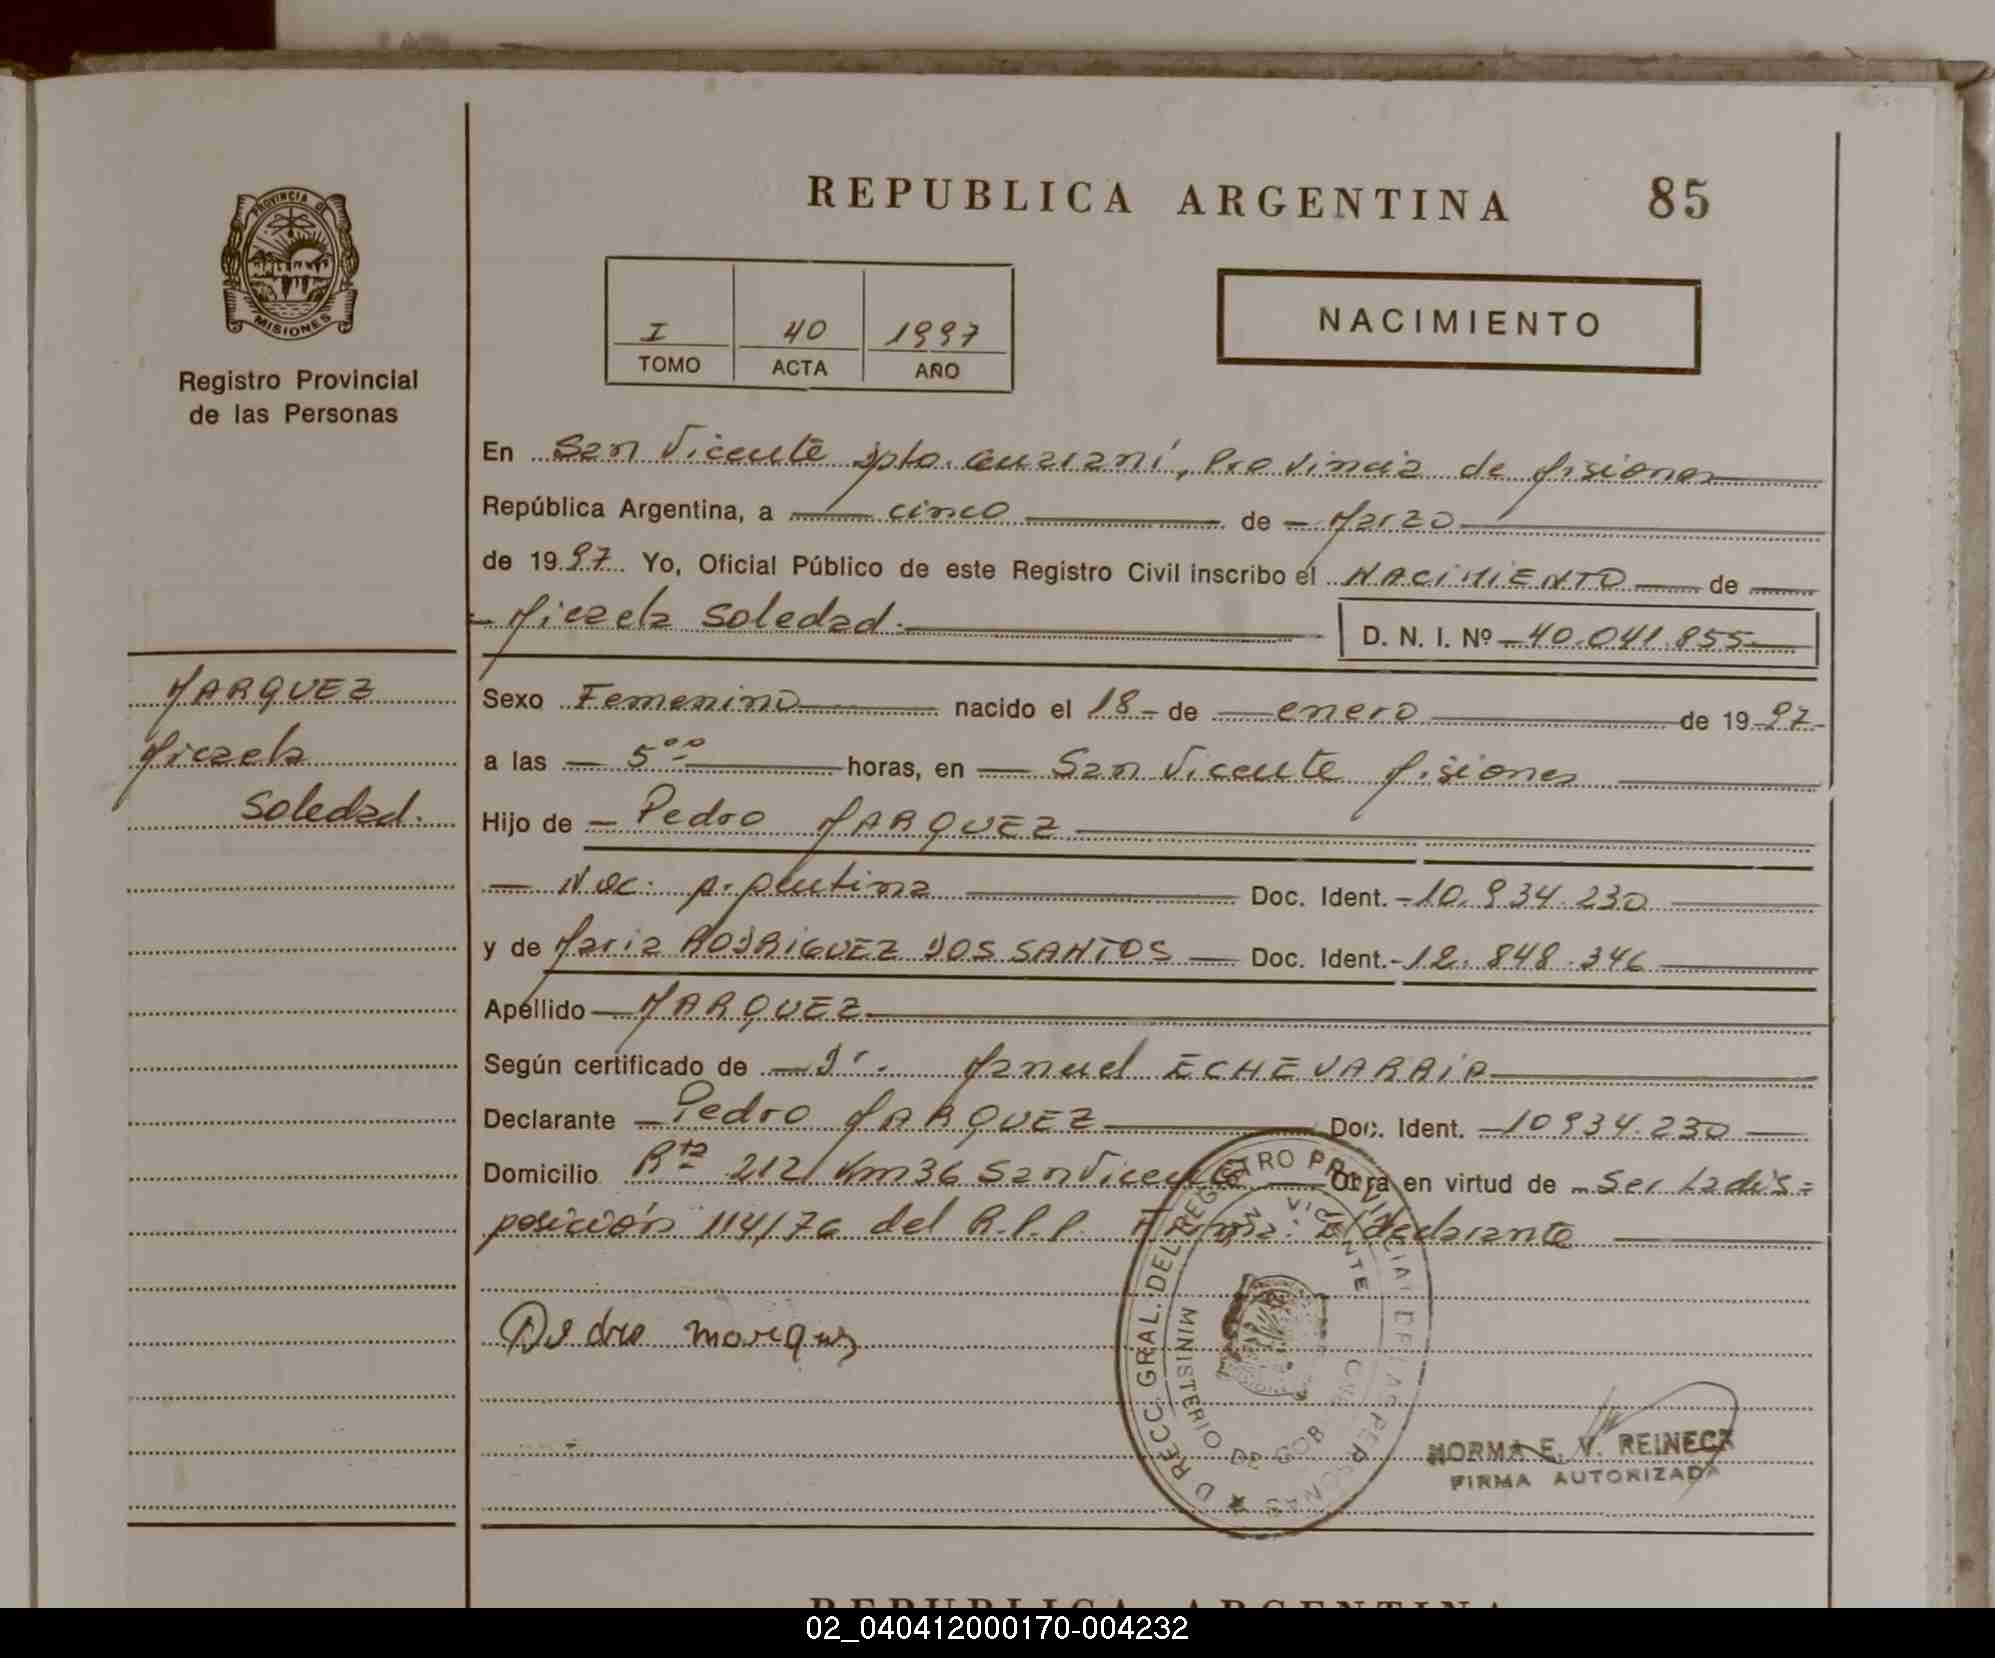 REPUBLICA ARGENTINA 85
PROVINCIA D
MISIONES
Registro Provincial
de las Personas
I 40 1997
TOMO ACTA AÑO
NACIMIENTO
En San Vicente Dpto. Guaraní, Provincia de Misiones
República Argentina, a cinco de Marzo
de 1997 Yo, Oficial Público de este Registro Civil inscribo el NACIMIENTO de
Micaela Soledad.
D. N. I. Nº 40.041.855
MARQUEZ
Micaela
Soledad.
Sexo Femenino nacido el 18 de enero de 1997
a las 5⁰⁰ horas, en San Vicente Misiones
Hijo de Pedro MARQUEZ
Nac. Argentina Doc. Ident. 10.934.230
y de Maria RODRIGUEZ DOS SANTOS Doc. Ident. 12.848.346
Apellido MARQUEZ
Según certificado de Dr. Manuel ECHEVARRIA
Declarante Pedro MARQUEZ Doc. Ident. 10934.230
Domicilio Rta 212 Km 36 San Vicente Obra en virtud de Ser La dis=
posición 114/76 del R.P.P. Firma: El declarante
DIRECC. GRAL. DEL REGISTRO PROVINCIAL DE LAS PERSONAS
MINISTERIO DE GOB
VICENTE
NORMA E. V. REINECK
FIRMA AUTORIZADA
REPUBLICA ARGENTINA
02_040412000170-004232